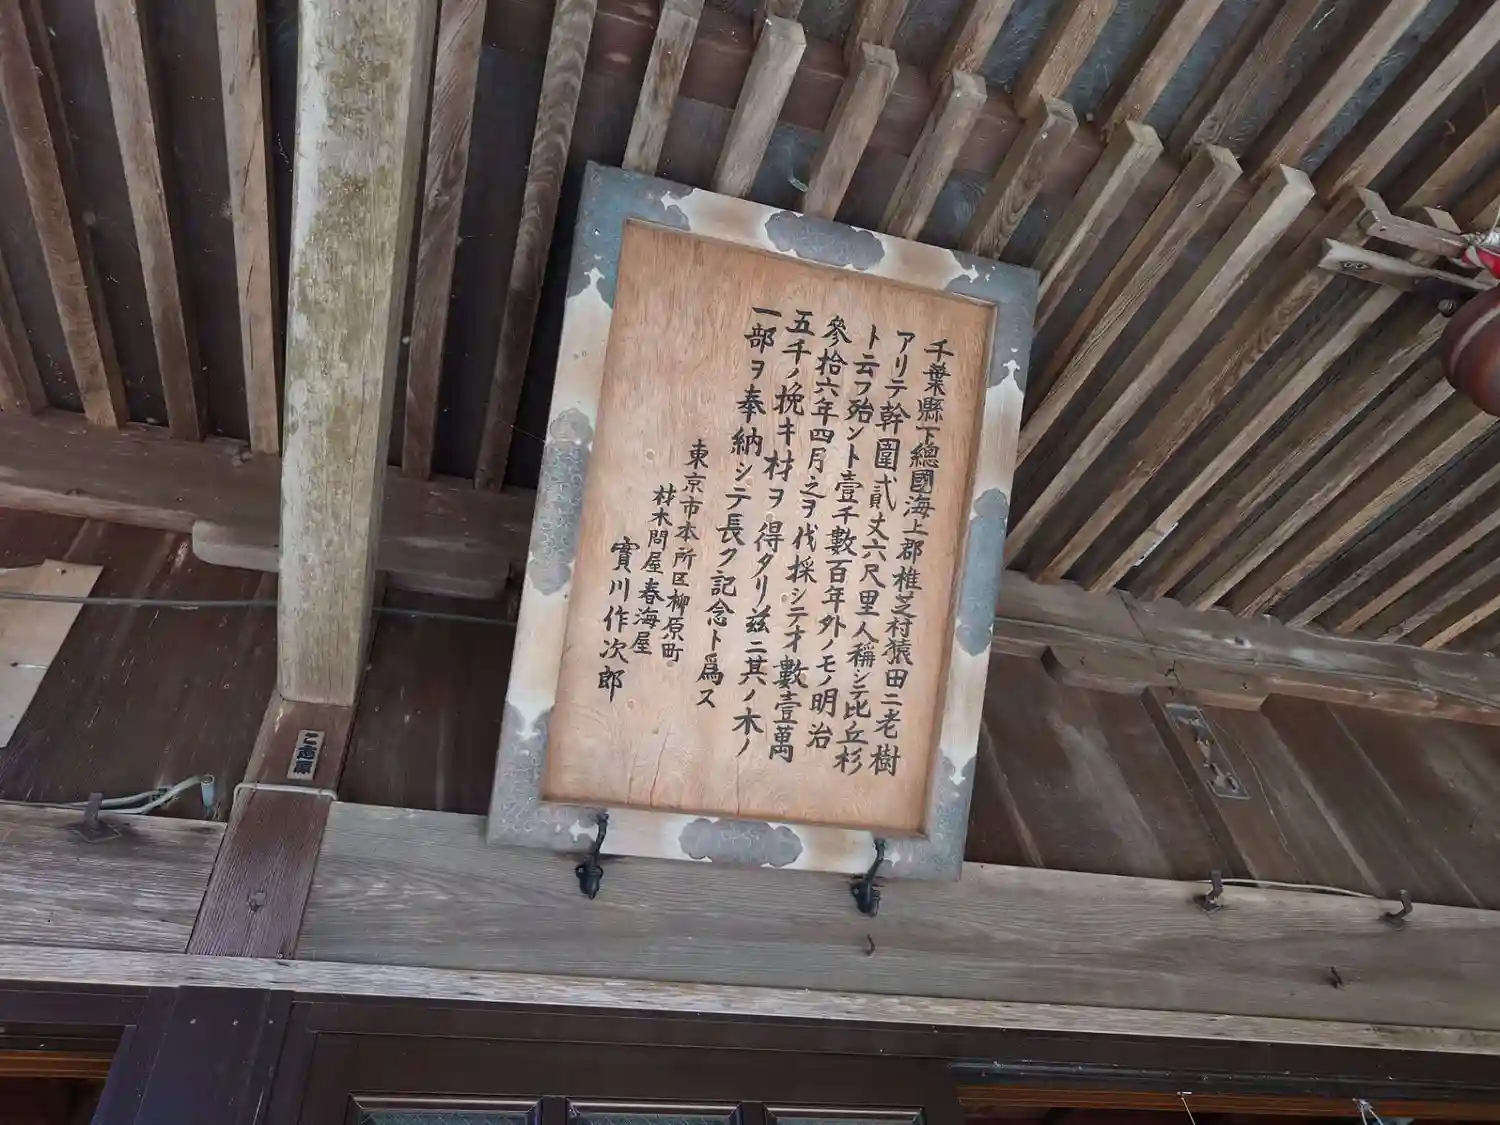 千葉縣下總國海上郡椎芝村猿田ニ老樹
アリテ幹圍貳丈六尺里人稱シテ比丘杉
ト云フ殆ント壹千數百年外ノモノ明治
參拾六年四月之ヲ伐採シテ才數壹萬
五千ノ挽キ材ヲ得タリ茲ニ其ノ木ノ
一部ヲ奉納シテ長ク記念ト爲ス
東京市本所区柳原町
材木問屋春海屋
實川作次郎